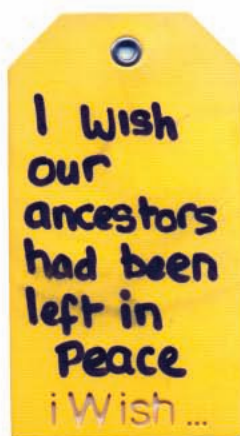 I wish
our
ancestors
had been
left in
Peace
iWish...